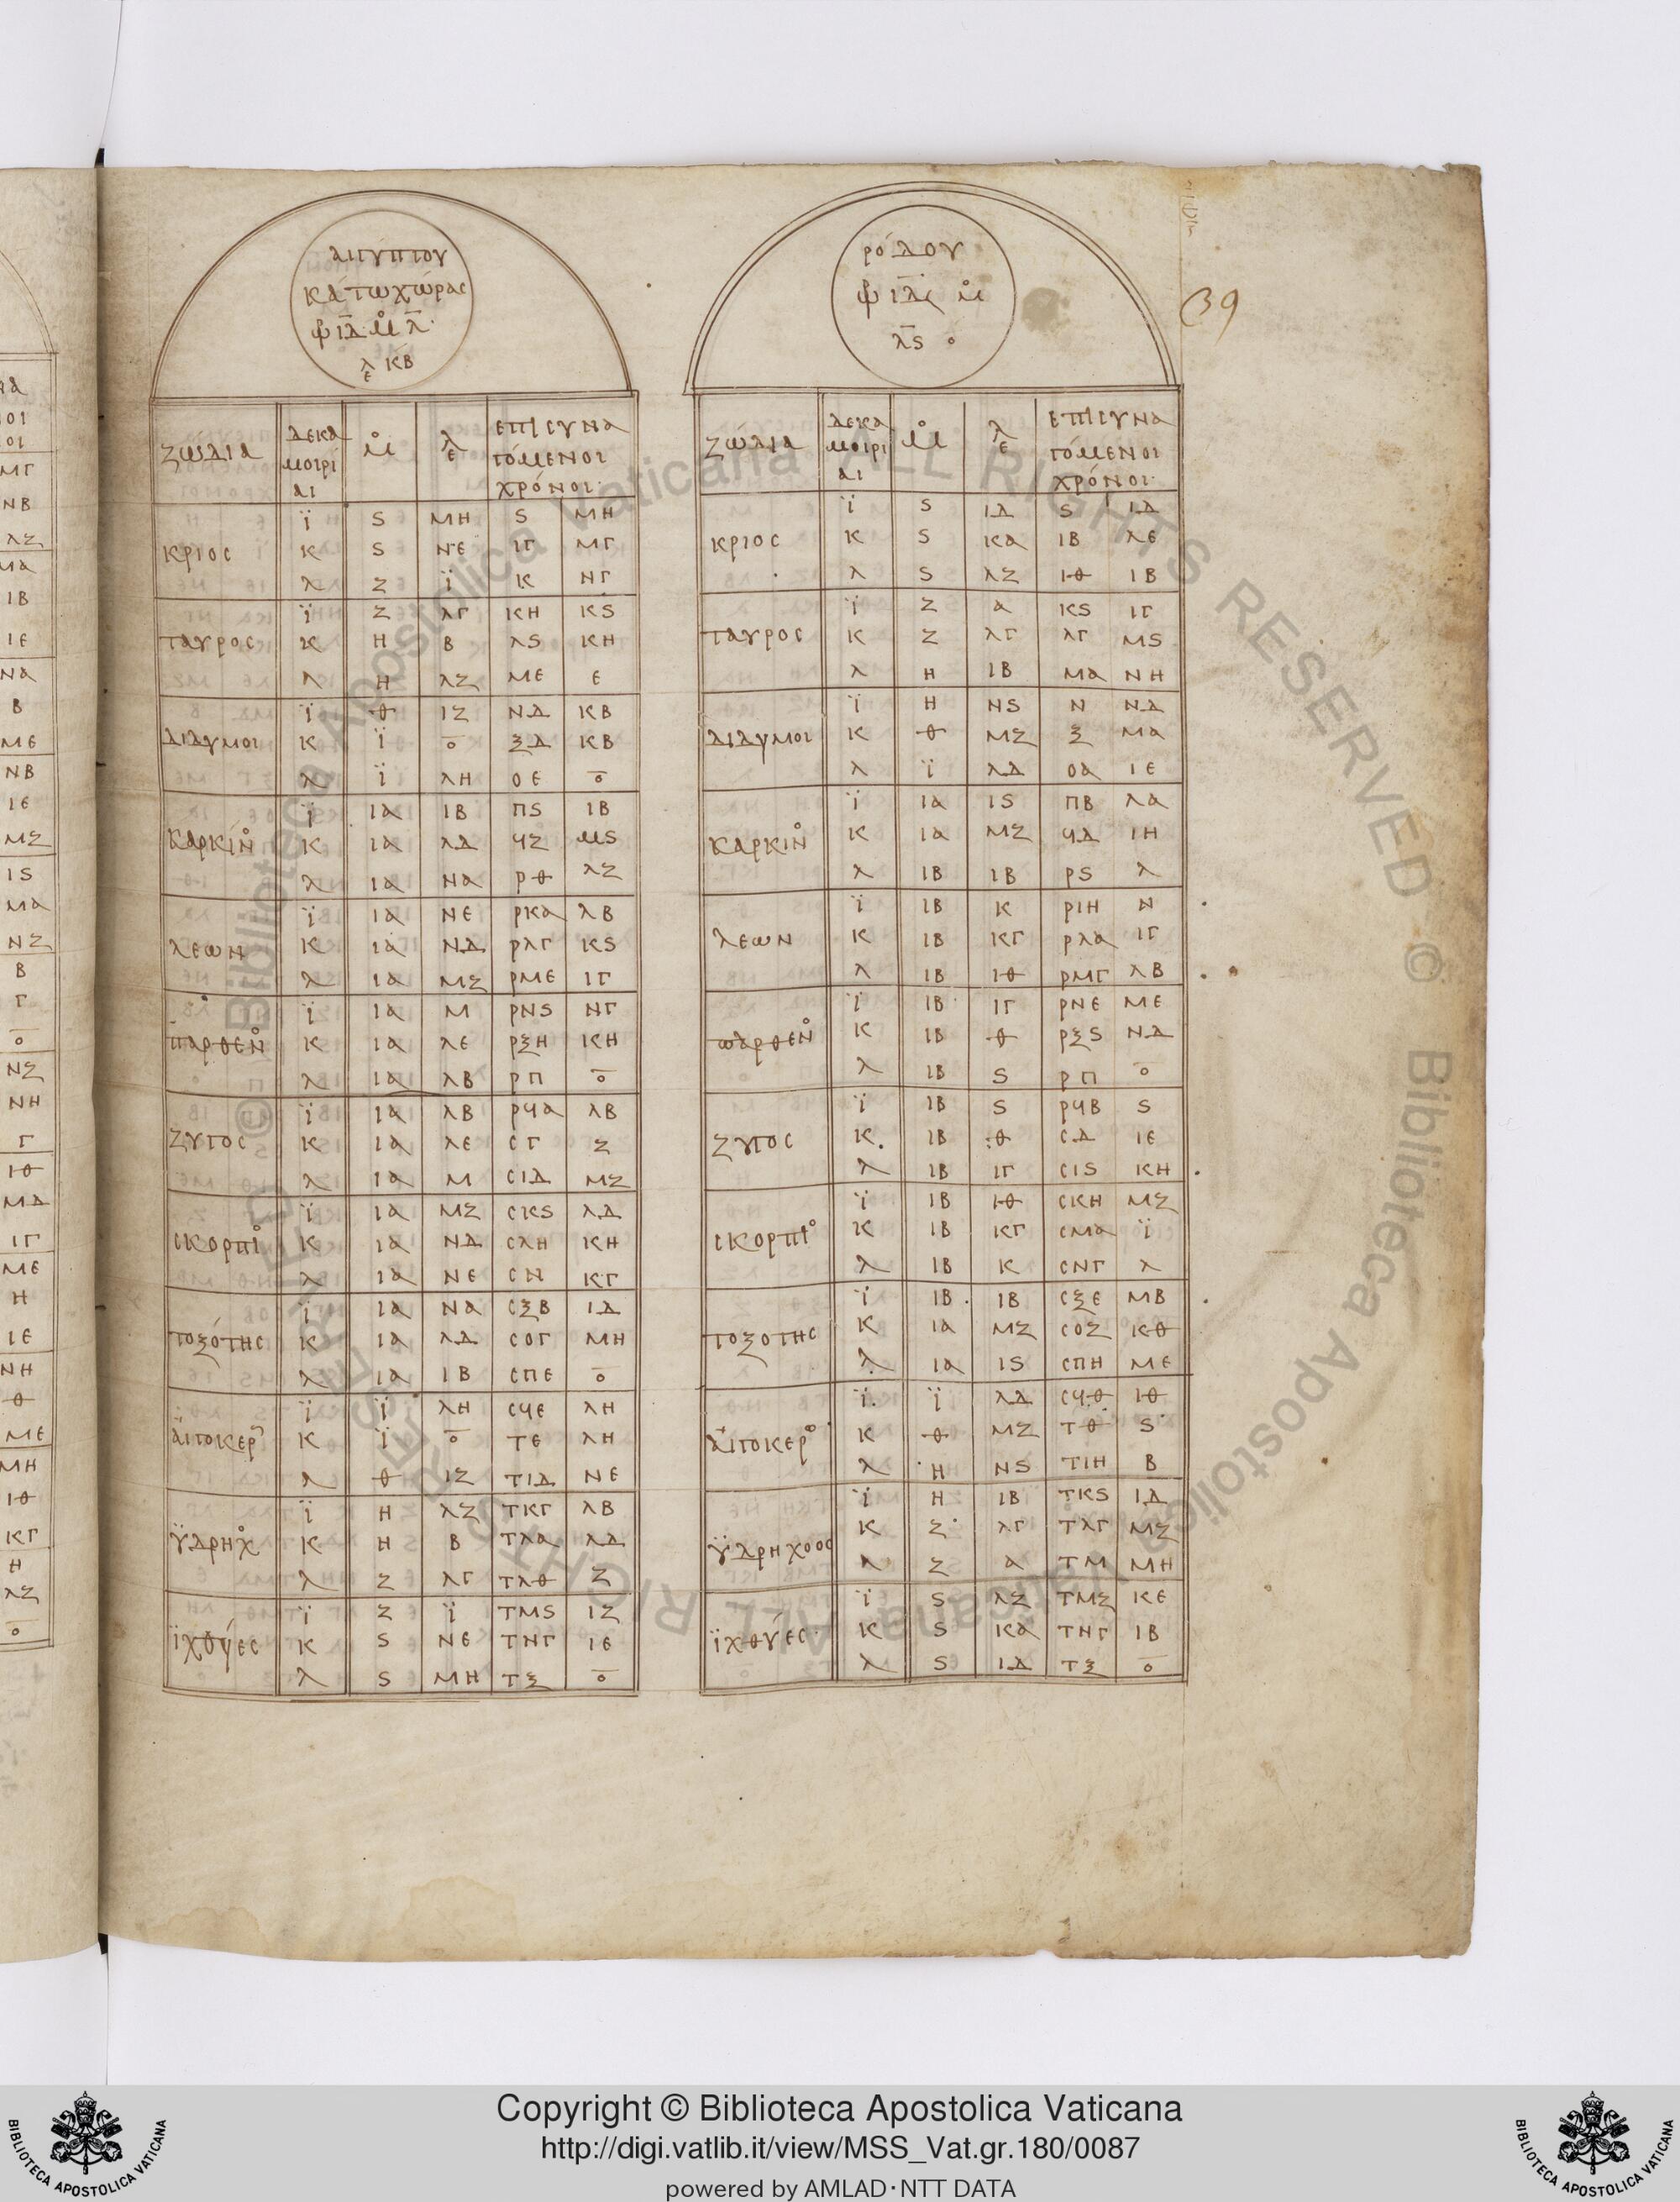 αιγυπτου
κάτωχώρας
ὡ ιδ μ̊ λ
λε κβ
ζώδια δεκα μοιρί αι μ̊ λε επισυνα γόμενοι χρόνοι
κριος ϊ ς μη ς μη
κ ς νε ιγ μγ
λ ζ ϊ κ νγ
ταυρος ϊ ζ λγ κη κς
κ η β λς κη
λ η λζ με ε
διδυμοι ϊ θ ιζ νδ κβ
κ ϊ ο̅ ξδ κβ
λ ϊ λη οε ο̅
καρκίν̊ ϊ ια ιβ πς ιβ
κ ια λδ ϟζ μς
λ ια να ρθ λζ
λεων ϊ ια νε ρκα λβ
κ ια νδ ρλγ κς
λ ια μζ ρμε ιγ
παρθεν̊ ϊ ια μ ρνς νγ
κ ια λε ρξη κη
λ ια λβ ρπ ο̅
ζυγος ϊ ια λβ ρϟα λβ
κ ια λε σγ ζ
λ ια μ σιδ μζ
σκορπι̊ ϊ ια μζ σκς λδ
κ ια νδ σλη κη
λ ια νε σν κγ
τοξότης ϊ ια να σξβ ιδ
κ ια λδ σογ μη
λ ια ιβ σπε ο̅
αιγοκερ ϊ ϊ λη σϟε λη
κ ϊ ο̅ τε λη
λ θ ιζ τιδ νε
ϋδρηχ̊ ϊ η λζ τκγ λβ
κ η β τλα λδ
λ ζ λγ τλθ ζ
ϊχθύες ϊ ζ ϊ τμς ιζ
κ ς νε τνγ ιε
λ ς μη τξ ο̅
ρόδου
ὡ ιδ μ̊
λς ο
ζώδια δεκα μοιρι αι μ̊ λε επισυνα γόμενοι χρόνοι
κριος ϊ ς ιδ ς ιδ
κ ς κα ιβ λε
λ ς λζ ιθ ιβ
ταυρος ϊ ζ α κς ιγ
κ ζ λγ λγ μς
λ η ιβ μα νη
διδυμοι ϊ η νς ν νδ
κ θ μζ ξ μα
λ ϊ λδ οα ιε
καρκιν̊ ϊ ια ις πβ λα
κ ια μζ ϟδ ιη
λ ιβ ιβ ρς λ
λεων ϊ ιβ κ ριη ν
κ ιβ κγ ρλα ιγ
λ ιβ ιθ ρμγ λβ
παρθεν̊ ϊ ιβ ιγ ρνε με
κ ιβ θ ρξς νδ
λ ιβ ς ρπ ο̅
ζυγος ϊ ιβ ς ρϟβ ς
κ ιβ θ σδ ιε
λ ιβ ιγ σις κη
σκορπι̊ ϊ ιβ ιθ σκη μζ
κ ιβ κγ σμα ϊ
λ ιβ κ σνγ λ
τοξοτης ϊ ιβ ιβ σξε μβ
κ ια μζ σοζ κθ
λ ια ις σπη με
αιγοκερ̊ ϊ ϊ λδ σϟθ ιθ
κ θ μζ τθ ς
λ η νς τιη β
ϋδρηχοος ϊ η ιβ τκς ιδ
κ ζ λγ τλγ μζ
λ ζ α τμ μη
ϊχθύες ϊ ς λζ τμζ κε
κ ς κα τνγ ιβ
λ ς ιδ τξ ο̅
39
Copyright © Biblioteca Apostolica Vaticana
http://digi.vatlib.it/view/MSS_Vat.gr.180/0087
powered by AMLAD・NTT DATA
BIBLIOTECA APOSTOLICA VATICANA
BIBLIOTECA APOSTOLICA VATICANA
© Biblioteca Apostolica Vaticana ALL RIGHTS RESERVED
© Biblioteca Apostolica Vaticana ALL RIGHTS RESERVED